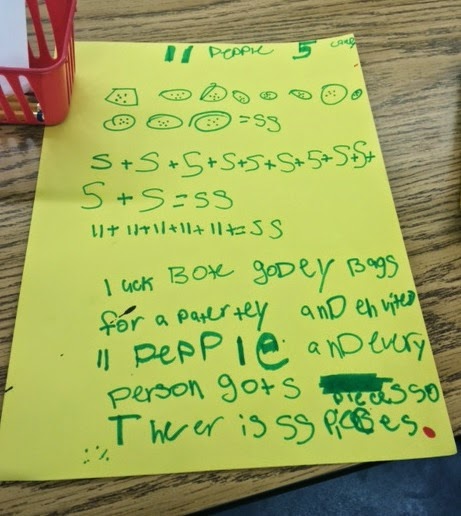 11 PEPPlE 5 CANDY
=55
5+5+5+5+5+5+5+5+5+
5+5=55
11+11+11+11+11=55
Bote goDEy BAgs
for a patertey anD enviteD
11 PEPPlE anD every
person got 5 piecesso
Therer is 55 picses.